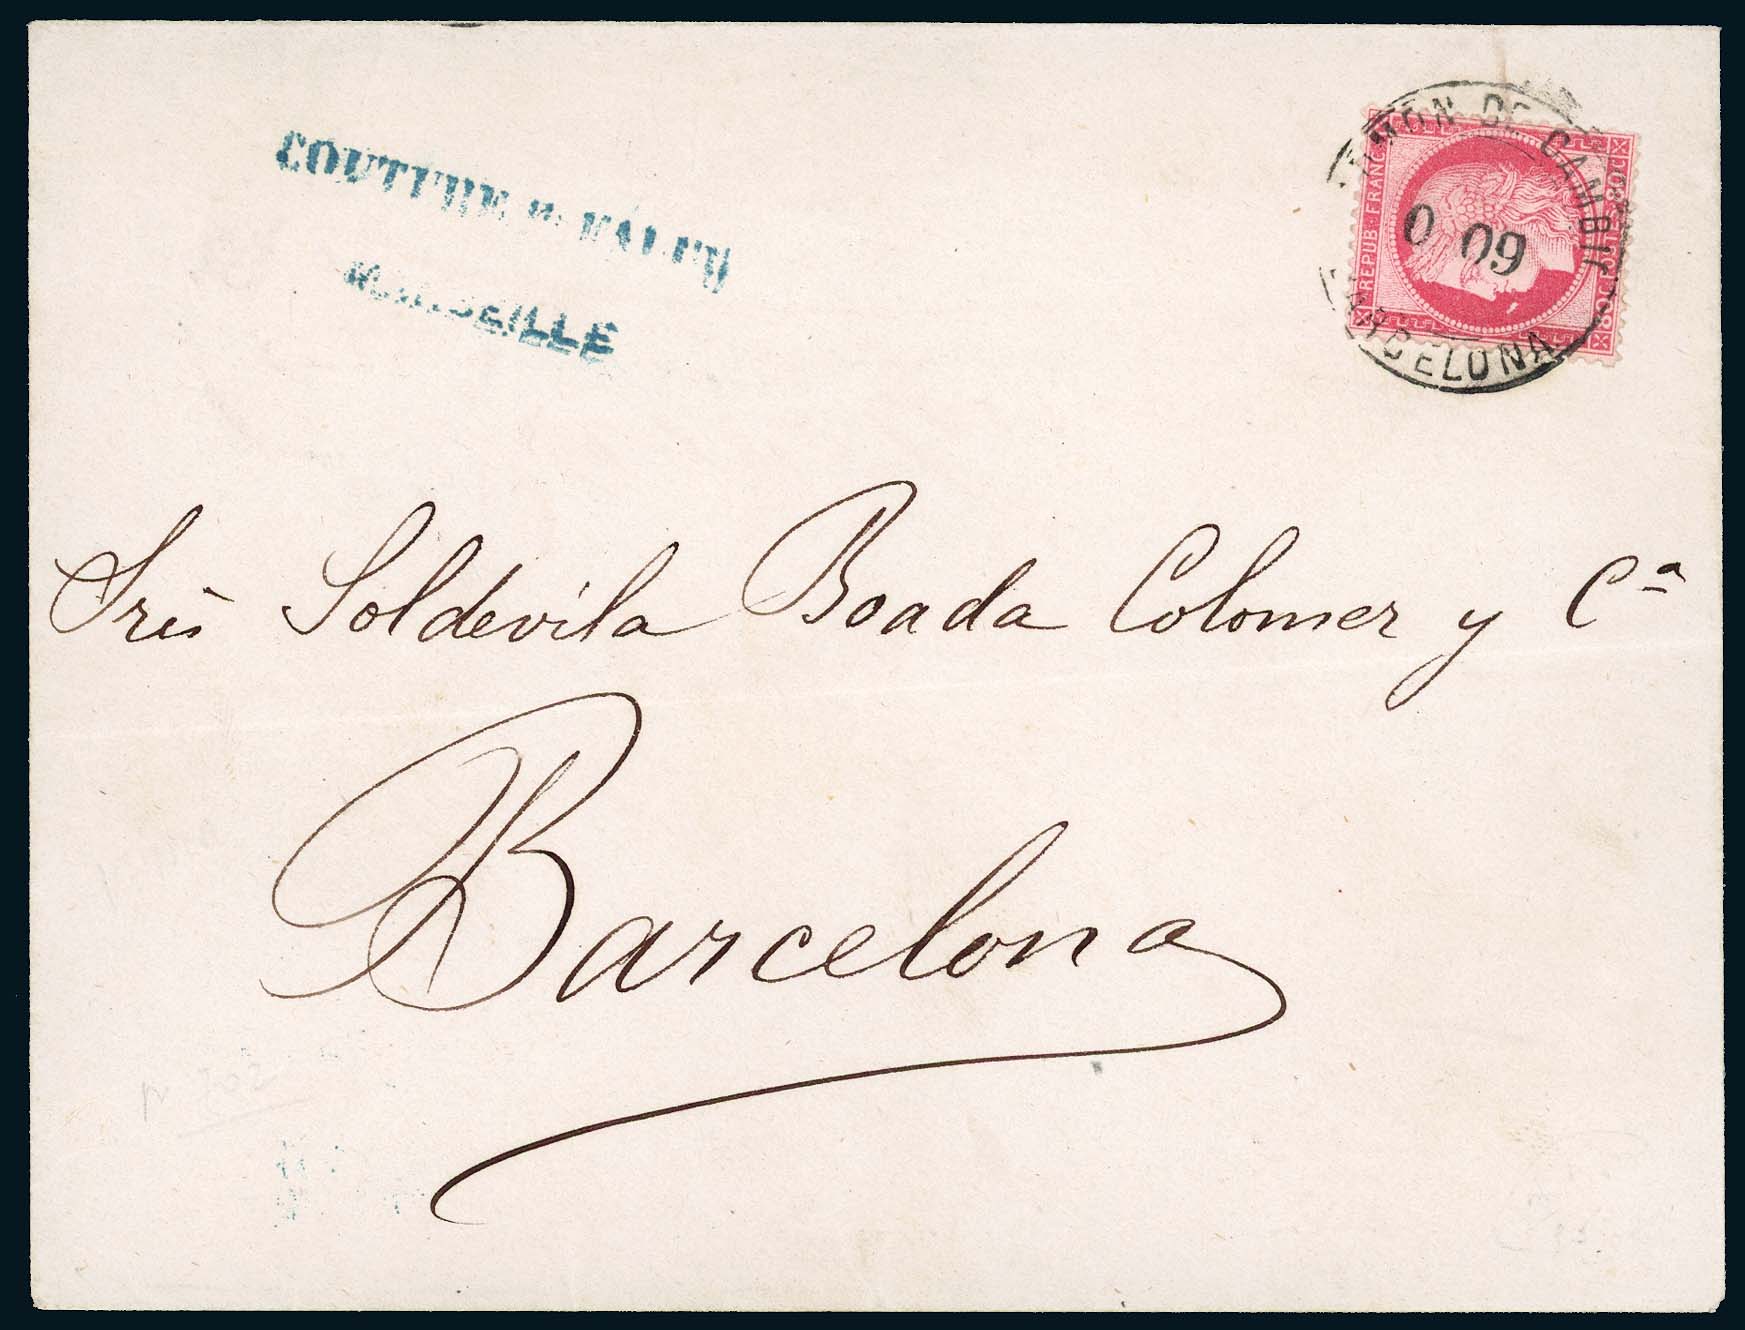 COUTURE
MARSEILLE
DE CAMBI
BARCELONA
0 09
REPUB·FRANC
80C POSTES 80C
Sres Soldevila Boada Colomer y Cª
Barcelona